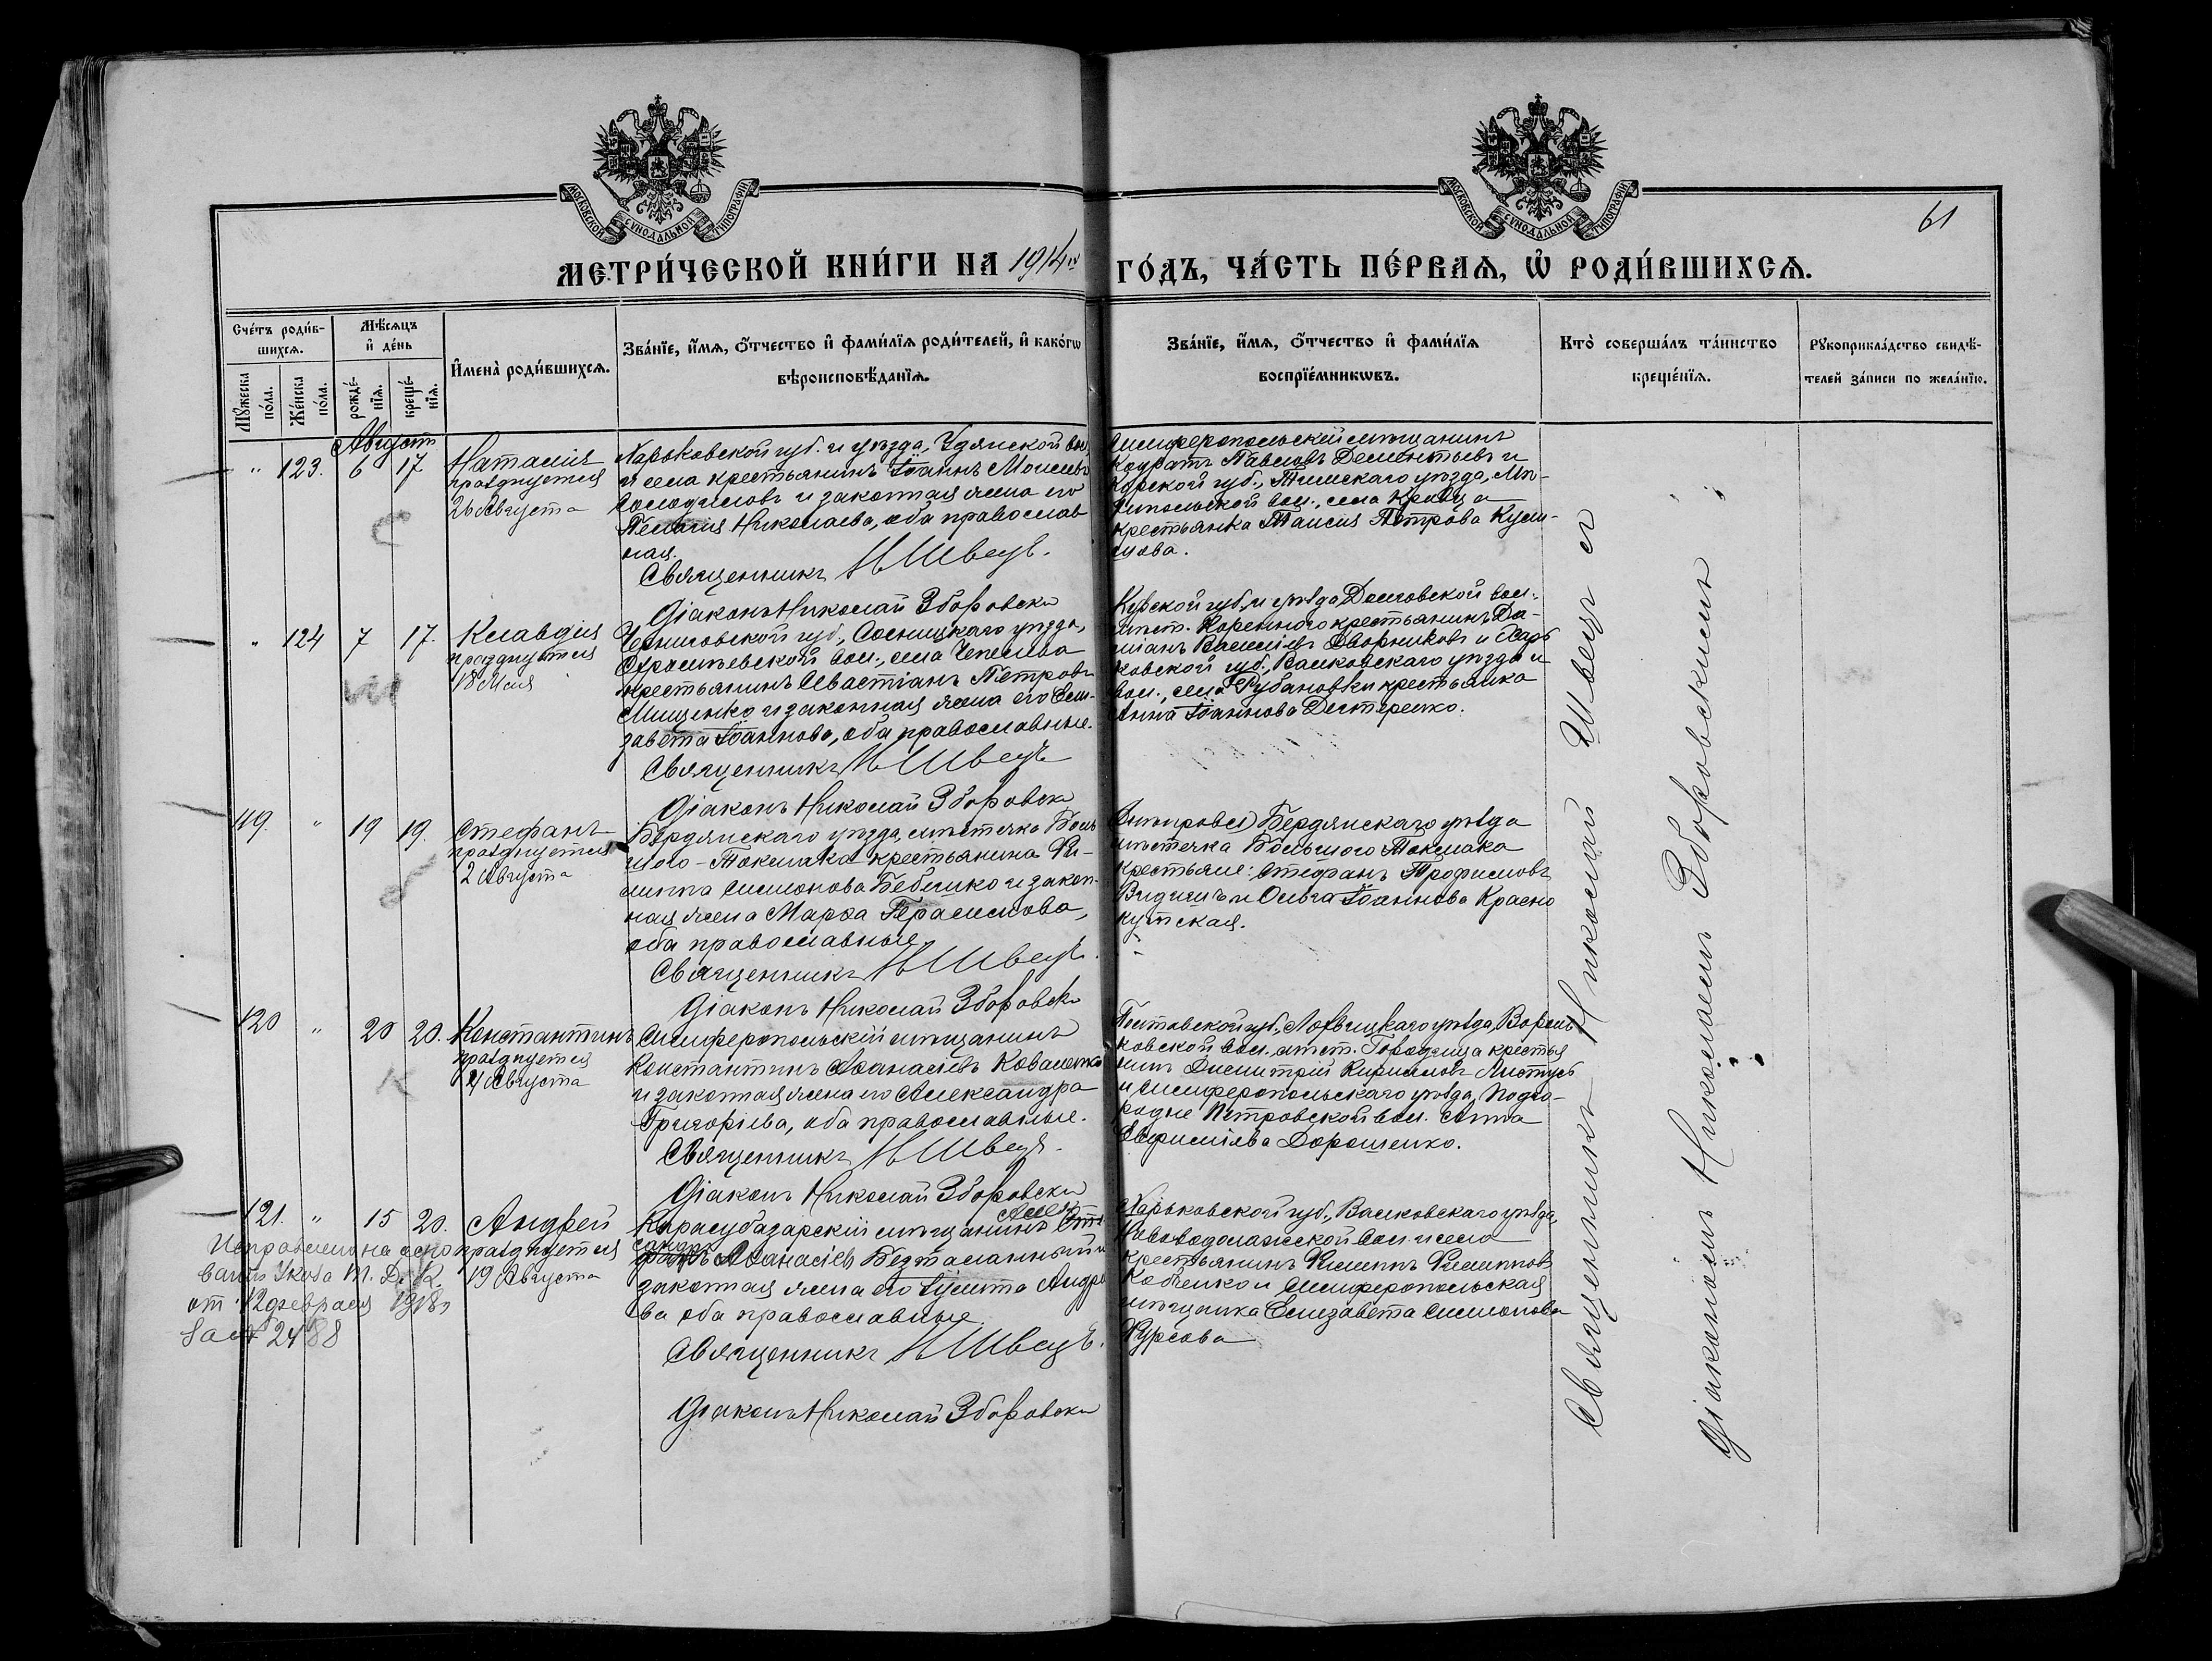 МОСКОВСКОЙ СѴНОДАЛЬНОЙ ТИПОГРАФІИ
МОСКОВСКОЙ СѴНОДАЛЬНОЙ ТИПОГРАФІИ
61
МЕТРИ́ЧЕСКОЙ КНИ́ГИ НА 1914й ГО́ДЪ, ЧА́СТЬ ПЕ́РВАЯ, Ѽ РОДИ́ВШИХСЯ.
Сче́тъ роди́в-
шихся.
Мѣ́сяцъ
и҆ де́нь
И҆мена̀ роди́вшихся.
Зва́нїе, и҆́мя, ѻ҆́тчество и҆ фами́лїя роди́телей, и҆ како́гѡ
вѣроисповѣ́данїя.
Зва́нїе, и҆́мя, ѻ҆́тчество и҆ фами́лїя
воспрїе́мникѡвъ.
Кто̀ соверша́лъ та́инство
креще́нїя.
Рꙋкоприкла́дство свидѣ́-
телей за́писи по жела́нїю.
Мꙋ́жеска
по́ла.
Же́нска
по́ла.
рожде́-
нїя.
креще́-
нїя.
Августъ
" 123. 6 17
Наталія
празднуется
26 Августа
Харьковской губ. и уѣзда, Удянской вол.
и села крестьянинъ Іоаннъ Моисеевъ
и законная жена его
Пелагія Николаева, оба православ
ная.
Священникъ Н Швецъ.
Діаконъ Николай Зборовски
Симферопольскій мѣщанинъ
Кодратъ Павловъ Дементьевъ и
Курской губ., Тимскаго уѣзда, Ли-
пипольской вол., села Кривца
крестьянка Таисія Петрова Кузь-
цова.
" 124 7 17.
Клавдія
празднуется
18 Мая
Черниговской губ., Сосницкаго уѣзда,
вол., села Чепелева
крестьянинъ Севастіанъ Петровъ
Мищенко и законная жена его Ели-
завета Іоаннова, оба православные.
Священникъ Н Швецъ
Діаконъ Николай Зборовски
Курской губ. и уѣзда Долговской вол.
мѣст. Кореннаго крестьянинъ Да-
міанъ Василіевъ Дворниковъ и Харь
ковской губ., Валковскаго уѣзда и
вол., села Рубановки крестьянка
Анна Іоаннова Дегтеренко.
119. " 19 19.
Стефанъ
празднуется
2 Августа
Бердянскаго уѣзда, мѣстечка Боль
шого-Токмака крестьянина Фи-
липпа Симонова Бебешко и закон-
ная жена Марѳа Герасимова,
оба православные
Священникъ Н Швецъ.
Діаконъ Николай Зборовски
Бердянскаго уѣзда
мѣстечка Большого Токмака
крестьяне: Стефанъ Трофимовъ
и Ольга Іоаннова Красно
кутская.
120 " 20 20.
Константинъ
празднуется
Августа
Симферопольскій мѣщанинъ
Константинъ Аѳанасіевъ Коваленко
и законная жена его Александра
Григоріева, оба православные.
Священникъ Н Швецъ.
Діаконъ Николай Зборовски
Полтавской губ., Лохвицкаго уѣзда,Воронь
ковской вол., мѣст. Городища крестья
нинъ Димитрій Кириловъ
и Симферопольскаго уѣзда, Подго-
родне Петровской вол. Анна
Евфиміева Дорошенко.
121. " 15 20.
Андрей
празднуется
19 Августа
Исправлено на осно
ваніи Указа Т. Д. К.
от 12 февраля 1918 г
за № 2488
Карасубазарскій мѣщанинъ
Алек
сандръ
Аѳанасіевъ Безталанный и
законная жена его Іулитта Андре
ва оба православные
Священникъ Н Швецъ.
Діаконъ Николай Зборовски
Харьковской губ., Валковскаго уѣзда,
Нововодолажской вол. и села
крестьянинъ Филиппъ Филипповъ
и Симферопольская
мѣщанка Елизавета Симонова
Фурсова
Священникъ Николай Швецъ съ
Діакономъ Николаемъ Зборовскимъ